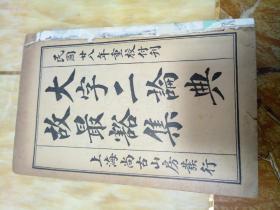 民國廿八年重校付刊
大字二論典
故最豁集
上海尚古山房發行